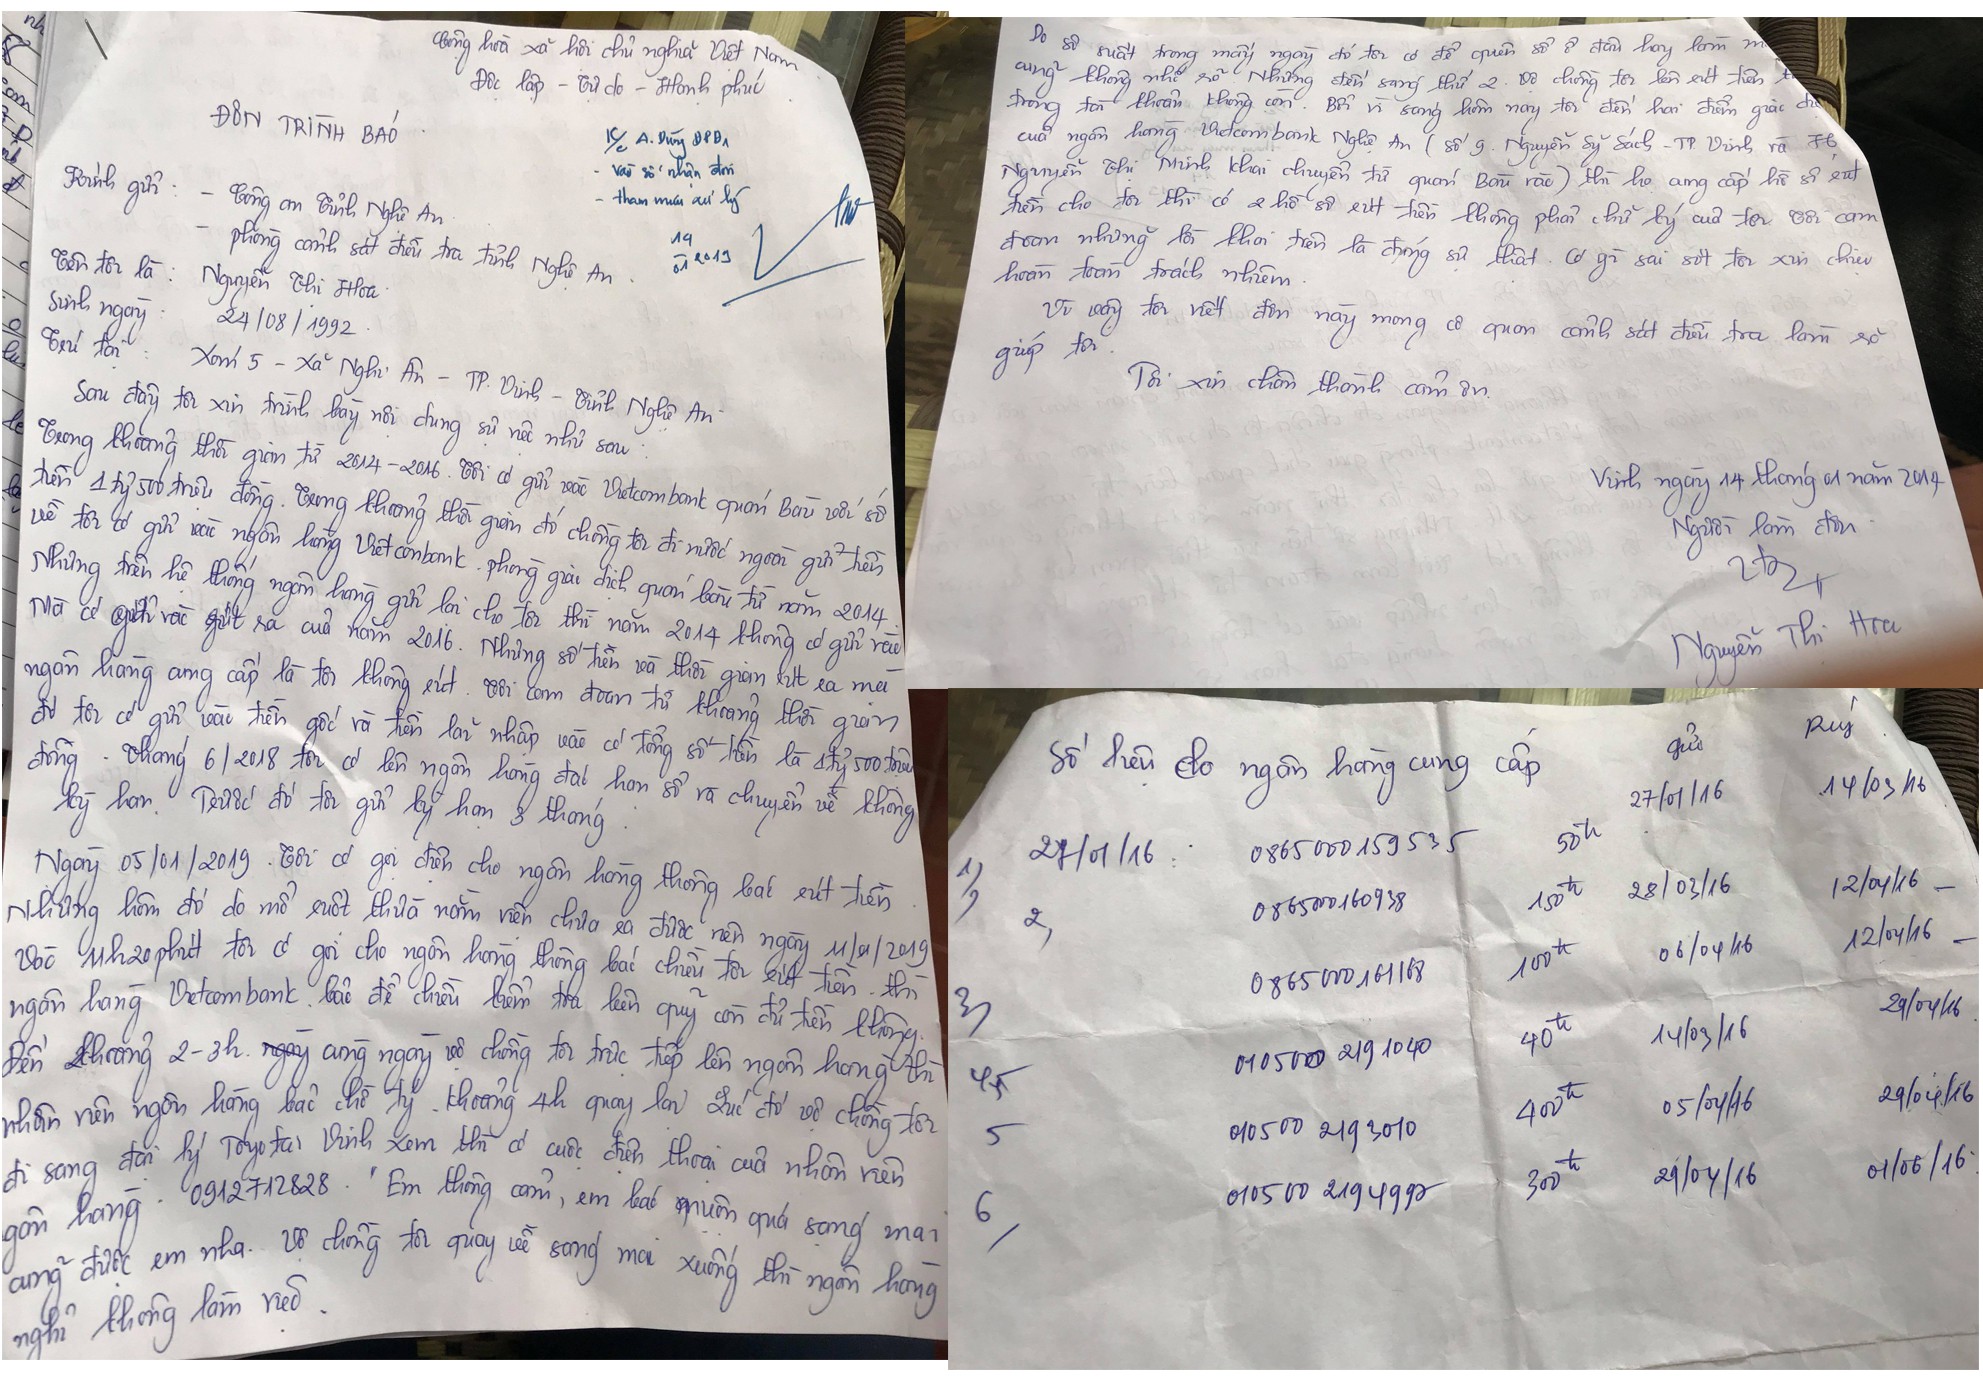 Cộng hoà xã hội chủ nghĩa Việt Nam
Độc lập - Tự do - Hạnh phúc
ĐƠN TRÌNH BÁO
K/c A. Dũng ĐPĐ1
- vào sổ nhận đơn
- tham mưu xử lý
14
01 2019
Kính gửi: - Công an Tỉnh Nghệ An.
- phòng cảnh sát điều tra tỉnh Nghệ An.
Tên tôi là: Nguyễn Thị Hoa.
Sinh ngày: 24/08/1992.
Trú tại: Xóm 5 - Xã Nghi Ân - TP. Vinh - Tỉnh Nghệ An.
Sau đây tôi xin trình bày nội dung sự việc như sau:
Trong khoảng thời gian từ 2014-2016. Tôi có gửi vào Vietcombank quán Bàu với số
tiền 1 tỷ 500 triệu đồng. Trong khoảng thời gian đó chồng tôi đi nước ngoài gửi tiền
về tôi có gửi vào ngân hàng Vietcombank. phòng giao dịch quán bàu từ năm 2014.
Nhưng trên hệ thống ngân hàng gửi lại cho tôi thì năm 2014 không có gửi vào
Mà có gửi vào rút ra của năm 2016. Nhưng số tiền và thời gian rút ra mà
ngân hàng cung cấp là tôi không rút. Tôi cam đoan từ khoảng thời gian
đó tôi có gửi vào tiền gốc và tiền lãi nhập vào có tổng số tiền là 1 tỷ 500 triệu
đồng. Tháng 6/2018 tôi có lên ngân hàng đáo hạn sổ và chuyển về không
kỳ hạn. Trước đó tôi gửi kỳ hạn 3 tháng.
Ngày 05/01/2019. Tôi có gọi điện cho ngân hàng thông báo rút tiền.
Nhưng hôm đó do mổ ruột thừa nằm viện chưa ra được nên ngày 11/01/2019
Vào 11h20phút tôi có gọi cho ngân hàng thông báo chiều tôi rút tiền. thì
ngân hàng Vietcombank. bảo để chiều kiểm tra bên quỹ còn đủ tiền không.
Đến khoảng 2-3h. cùng ngày vợ chồng tôi trực tiếp lên ngân hàng thì
nhân viên ngân hàng bảo chờ tý. khoảng 4h quay lại Lúc đó vợ chồng tôi
đi sang đại lý Toyota Vinh xem thì có cuộc điện thoại của nhân viên
gân hàng. 0912712828. "Em thông cảm, em báo muộn quá sáng mai
cũng được em nha. Vợ chồng tôi quay về sáng mai xuống thì ngân hàng
nghỉ không làm việc.
Do sơ suất trong mấy ngày đó tôi có để quên sổ ở đâu hay làm
cũng không nhớ rõ Nhưng đến sáng thứ 2. vợ chồng tôi lên rút tiền
trong tài khoản không còn. Bởi vì sáng hôm nay tôi đến hai điểm giao
của ngân hàng Vietcombank Nghệ An (số 9. Nguyễn Sỹ Sách - TP Vinh và 76
Nguyễn Thị Minh Khai chuyển từ quán Bàu vào) thì họ cung cấp hồ sơ rút
tiền cho tôi thì có 2 hồ sơ rút tiền không phải chữ ký của tôi. Tôi cam
đoan những lời khai trên là đúng sự thật. Có gì sai sót tôi xin chịu
hoàn toàn trách nhiệm.
Vì vậy tôi viết đơn này mong cơ quan cảnh sát điều tra làm rõ
giúp tôi.
Tôi xin chân thành cảm ơn.
Vinh ngày 14 tháng 01 năm 2014
Người làm đơn.
Nguyễn Thị Hoa
Số liệu do ngân hàng cung cấp gửi Rút
27/01/16 14/03/16
1, 27/01/16: 0865000159535 50tr
2, 086500160938 150tr 28/03/16 12/04/16 -
3, 0865000161168 100tr 06/04/16 12/04/16 -
4, 0105000 2191040 40tr 14/03/16 29/04/16.
5 010500 2193010 400tr 05/04/16 29/04/16
6, 010500 2194992 300tr 29/04/16 01/06/16.